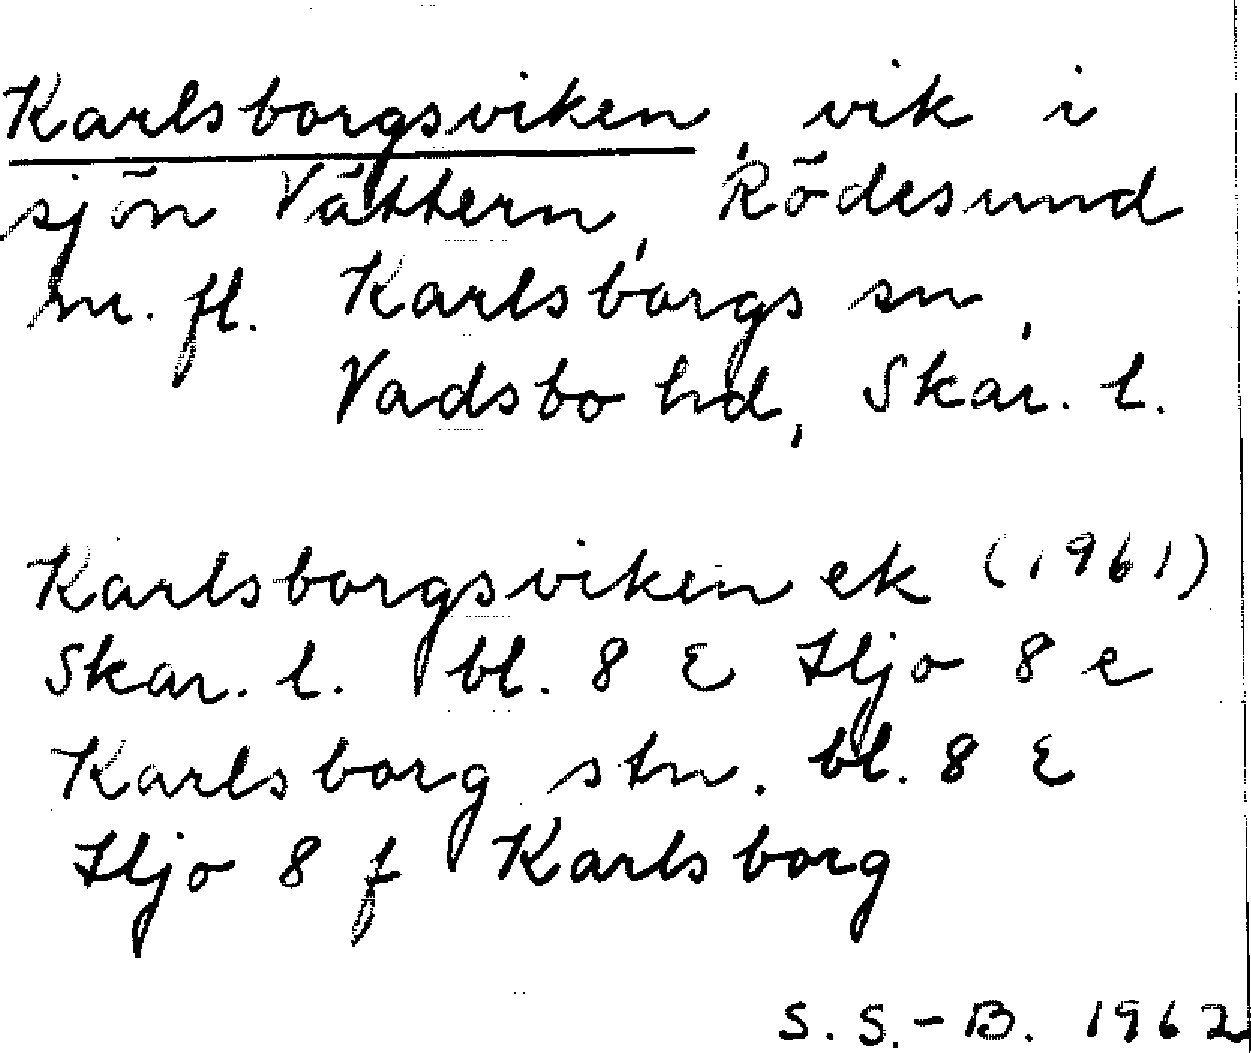 Karlsborgsviken, vik i
sjön Vättern, Rödesund
m. fl. Karlsborgs sn,
Vadsbo hd, Skar. l.
Karlsborgsviken ek (1961)
Skar. l. bl. 8 E Hjo 8 e
Karlsborg stn. bl. 8 E
Hjo 8 f Karlsborg
S. S.-B. 1962